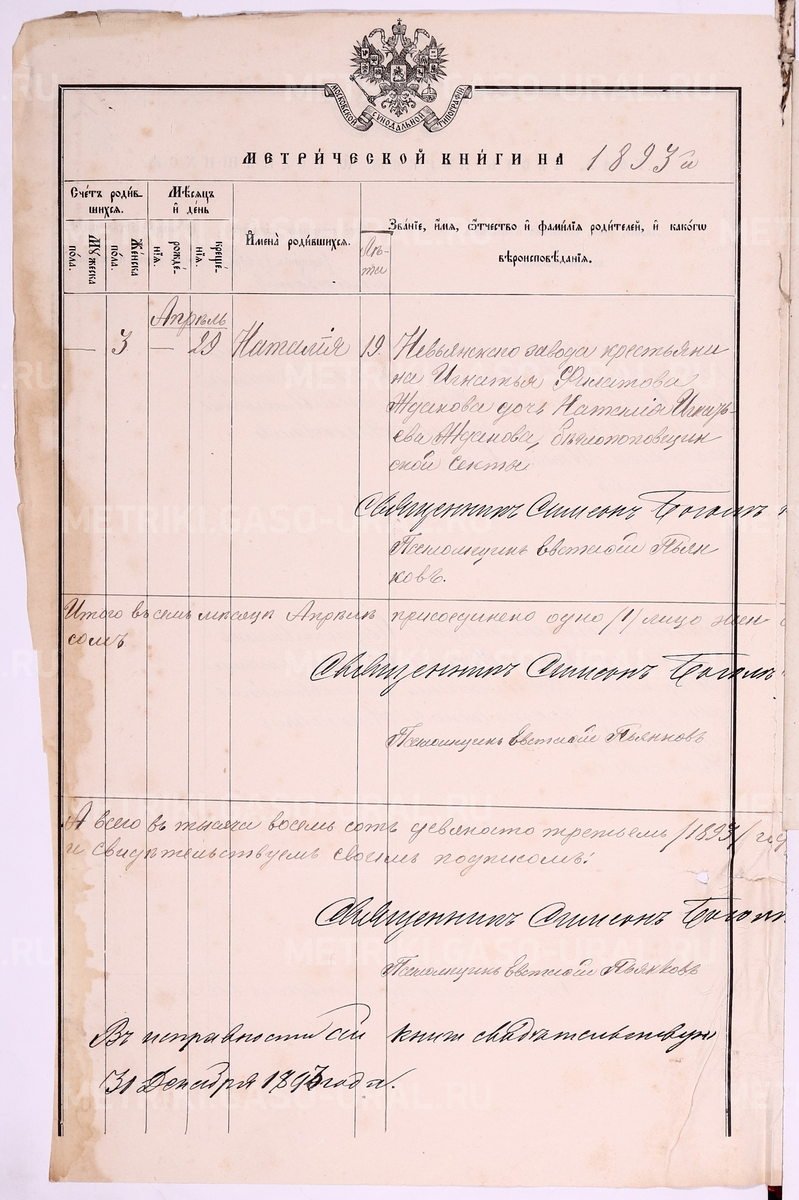 МОСКОВСКОЙ СУНОДАЛЬНОЙ ТИПОГРАФІИ
МЕТРИ́ЧЕСКОЙ КНИ́ГИ НА 1893 й
Сче́тъ роди́в-
шихся.
Мѣ́сяцъ
и҆ де́нь
Му́жеска
по́ла.
Же́нска
по́ла.
рожде́-
нїѧ.
креще́-
нїѧ.
И҆мена̀ роди́вшихся.
Лѣ-
та
Зва́нїе, и҆́мя, ѻ҆́тчество и҆ фами́лїя роди́телей, и҆ како́гѡ
вѣроисповѣ́данїя.
Апрѣль
— 3 — 29 Наталія 19. Невьянскаго завода крестьяни
на Игнатья Филатова
Жданова дочь Наталія Игнать-
ева Жданова, бѣлопоповщин
ской секты
Священникъ Симеонъ
Псаломщикъ Евгеній Пьян
ковъ.
Итого въ семъ мѣсяцѣ Апрѣлѣ присоединено одно /1/ лицо жен-
Священникъ Симеонъ
Псаломщикъ Евгеній Пьянковъ
А всего въ тысяча восемь сотъ девяносто третьемъ /1893/ год
и свидѣтельствуемъ своимъ подписомъ:
Священникъ Симеонъ
Псаломщикъ Евгеній Пьянковъ
Въ исправности сей книги свидѣтельствую
31 Декабря 1893 года.
METRIKI.GASO-URAL.RU